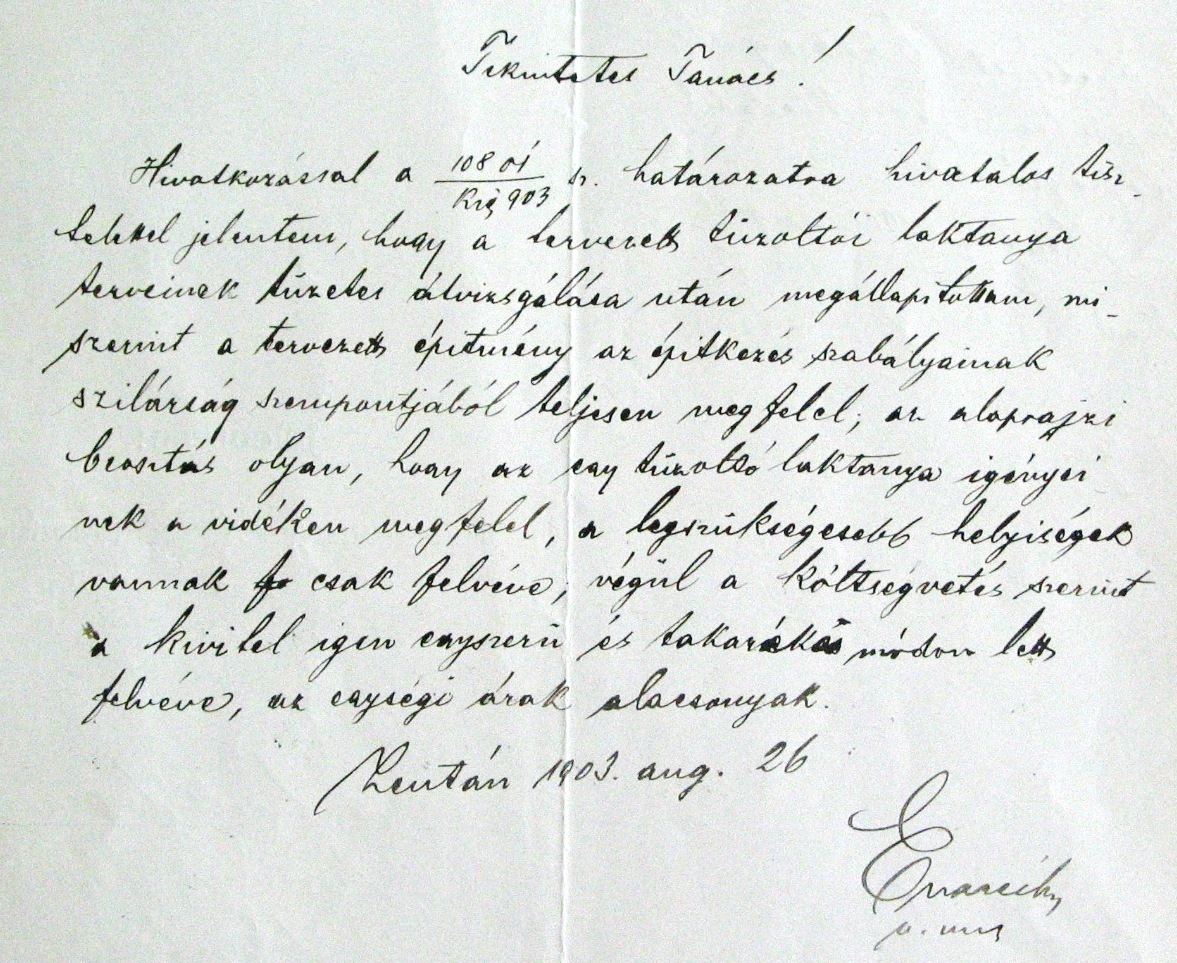 Tekintetes Tanács!
Hivatkozással a 10801 / Kig 903 sz. határozatra hivatalos tisz-
telettel jelentem, hogy a tervezett tűzoltói laktanya
terveinek tüzetes átvizsgálása után megállapitottam, mi-
szerint a tervezett épitmény az épitkezés szabályainak
szilárság szempontjából teljesen megfelel; az alaprajzi
beosztás olyan, hogy az egy tűzoltó laktanya igényei
nek a vidéken megfelel, a legszükségesebb helyiségek
vannak csak felvéve; végül a költségvetés szerint
a kivitel igen egyszerü és takarékos módon lett
felvéve, az egységi árak alacsonyak.
Zentán 1903. aug. 26